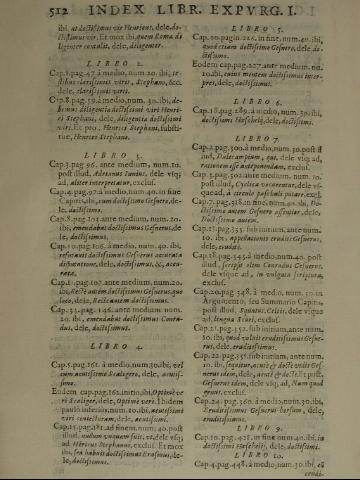 512 INDEX LIBR. EXPVRG. I.
ibi, ut doctissimus vir Henricus, dele, do-
ctissimus vir. Et mox ibi, quem Roma di
ligenter dele, diligenter.
LIBRO 2.
Cap. 1. pag. 47. à medio, num. 20. ibi, te-
stibus clarissimis viris, Stephano, &c.
dele, clarissimis viris.
Cap. 8. pag. 59. à medio, num. 30. ibi, de-
bemus diligentia doctissimi viri Henri-
ci Stephani, dele, diligentia doctissimi
viri. Et pro, Henrici Stephani, substi-
tue, Henrico Stephano.
LIBRO 3.
Cap. 3. pag. 96. ante medium, num. 10.
post illud, Adrianus Iunius. dele vsq;
ad, aliter interpretatur, exclus.
Cap. 4. pag. 97. à medio, num. 40. in fine
Capitis, ibi, cum doctissimo Gesnero, de-
le, doctissimo.
Cap. 8. pag. 103. ante medium, num. 20.
ibi, emendabat doctissimus Gesnerus, de-
le, doctissimus.
Cap. 10. pag. 106. à medio, num. 40. ibi,
refutavit doctissimus Gesnerus accurata
disputatione, dele, doctissimus, &, accu-
rata.
Cap. 11. pag. 107. ante medium, num. 20.
ibi, Recte autem doctissimus Gesnerus, quo
loco, dele, Recte autem doctissimus.
Cap. 33. pag. 146. ante medium, num.
20. ibi, emendabat doctissimus Conra-
dus, dele, doctissimus.
LIBRO 4.
Cap. 5. pag. 161. à medio, num. 30. ibi, vel
cum acutissimo Scaligero, dele, acutis-
simo.
Eadem cap. pag. 162. initio, ibi, Optime ve
rò Scaliger, dele, Optime verò. Ibidem
paulo inferiùs, num. 10. ibi, acutissimi
viri coniecturam, dele, acutissimi.
Cap. 15. pag. 181. ad finem, num. 40. post
illud, nullum vnquam fuit, vt, dele vsq;
ad Hericus Stephanus, exclus. Et mox
ibi, sed habuit doctissimus Erasmus, de-
le, doctissimus.
LIBRO 5.
Cap. 10. pagin. 221. in fine, num. 40. ibi,
quod etiam doctissimo Gesnero, dele, do-
ctissimo.
Eadem cap. pag. 227. ante medium, nu.
20. ibi, cuius mentem doctissimus inter-
pres, dele, doctissimus.
LIBRO 6.
Cap. 18. pag. 289. à medio, num. 30. ibi,
doctissimi Hoschelij, dele, doctissimi.
LIBRO 7.
Cap. 2. pag. 300. à medio, num. 30. post il
lud, Dalecampium, qui, dele vsq; ad,
rationem esse antiponendam, exclus.
Cap. 3. pag. 302. ante medium, num. 10.
post illud, Cyclica vocarentur, dele vs-
que ad, à circulo pastilisque putare, excl.
Cap. 7. pag. 318. in fine, num. 40. ibi, Do-
ctissimo autem Gesnero assentior, dele,
Doctissimo autem.
Cap. 15. pag. 335. sub initium, ante num.
10. ibi, Appellationes eruditè Gesnerus,
dele, eruditè.
Cap. 18. pag. 343. à medio, num. 40. post
illud, scripsit olim Conradus Gesnerus,
dele vsque ad, in vulgata scriptura,
exclus.
Cap. 20. pag. 348. à medio, num. 20. in
Argumento, seu Summario Capitis,
post illud, Squatus, Celsis, dele vsque
ad, lingua Sciuri, exclus.
Cap. 21. pag. 352. sub initium, ante num.
10. ibi, quod voluit eruditissimus Gesne-
rus, dele, eruditissimus.
Cap. 22. pag. 355. sub initium, ante num.
20. ibi, sequitur, acutè & doctè volit Ges-
nerus idem, dele, acutè & doctè. Et post
Gesnerus idem, dele vsq; ad, Nam quod
genus, exclus.
Cap. 24. pag. 360. à medio, num. 30. ibi,
Eruditissimus Gesnerus bersum, dele,
eruditissimus.
LIBRO 9.
Cap. 10. pag. 421. in fine, num. 40. ibi, in
doctissimi Hoschelij, dele, doctissimi.
LIBRO 10.
Cap. 4. pag. 448. à medio, num. 30. ibi, eâ
erudi-